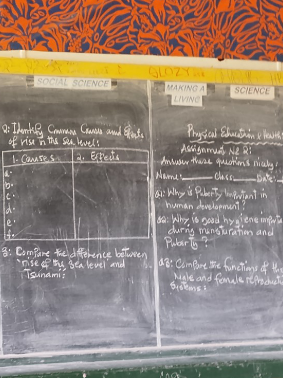 SOCIAL SCIENCE
MAKING A
LIVING
SCIENCE
Q: Identify Common Causes and Effects
of rise in the sea level:
1. Causes 2. Effects
a.
b.
c.
d.
e.
f.
3: Compare the difference between
rise of the sea level and
Tsunami:
Physical Education & Health
Assignment
Answer these questions nicely:
Name: Class: Date:
Q1: Why is Puberty important in
human development?
Q2: Why is good hygiene
during menstruation and
Puberty?
Q3: Compare the functions of the
male and female
Systems: